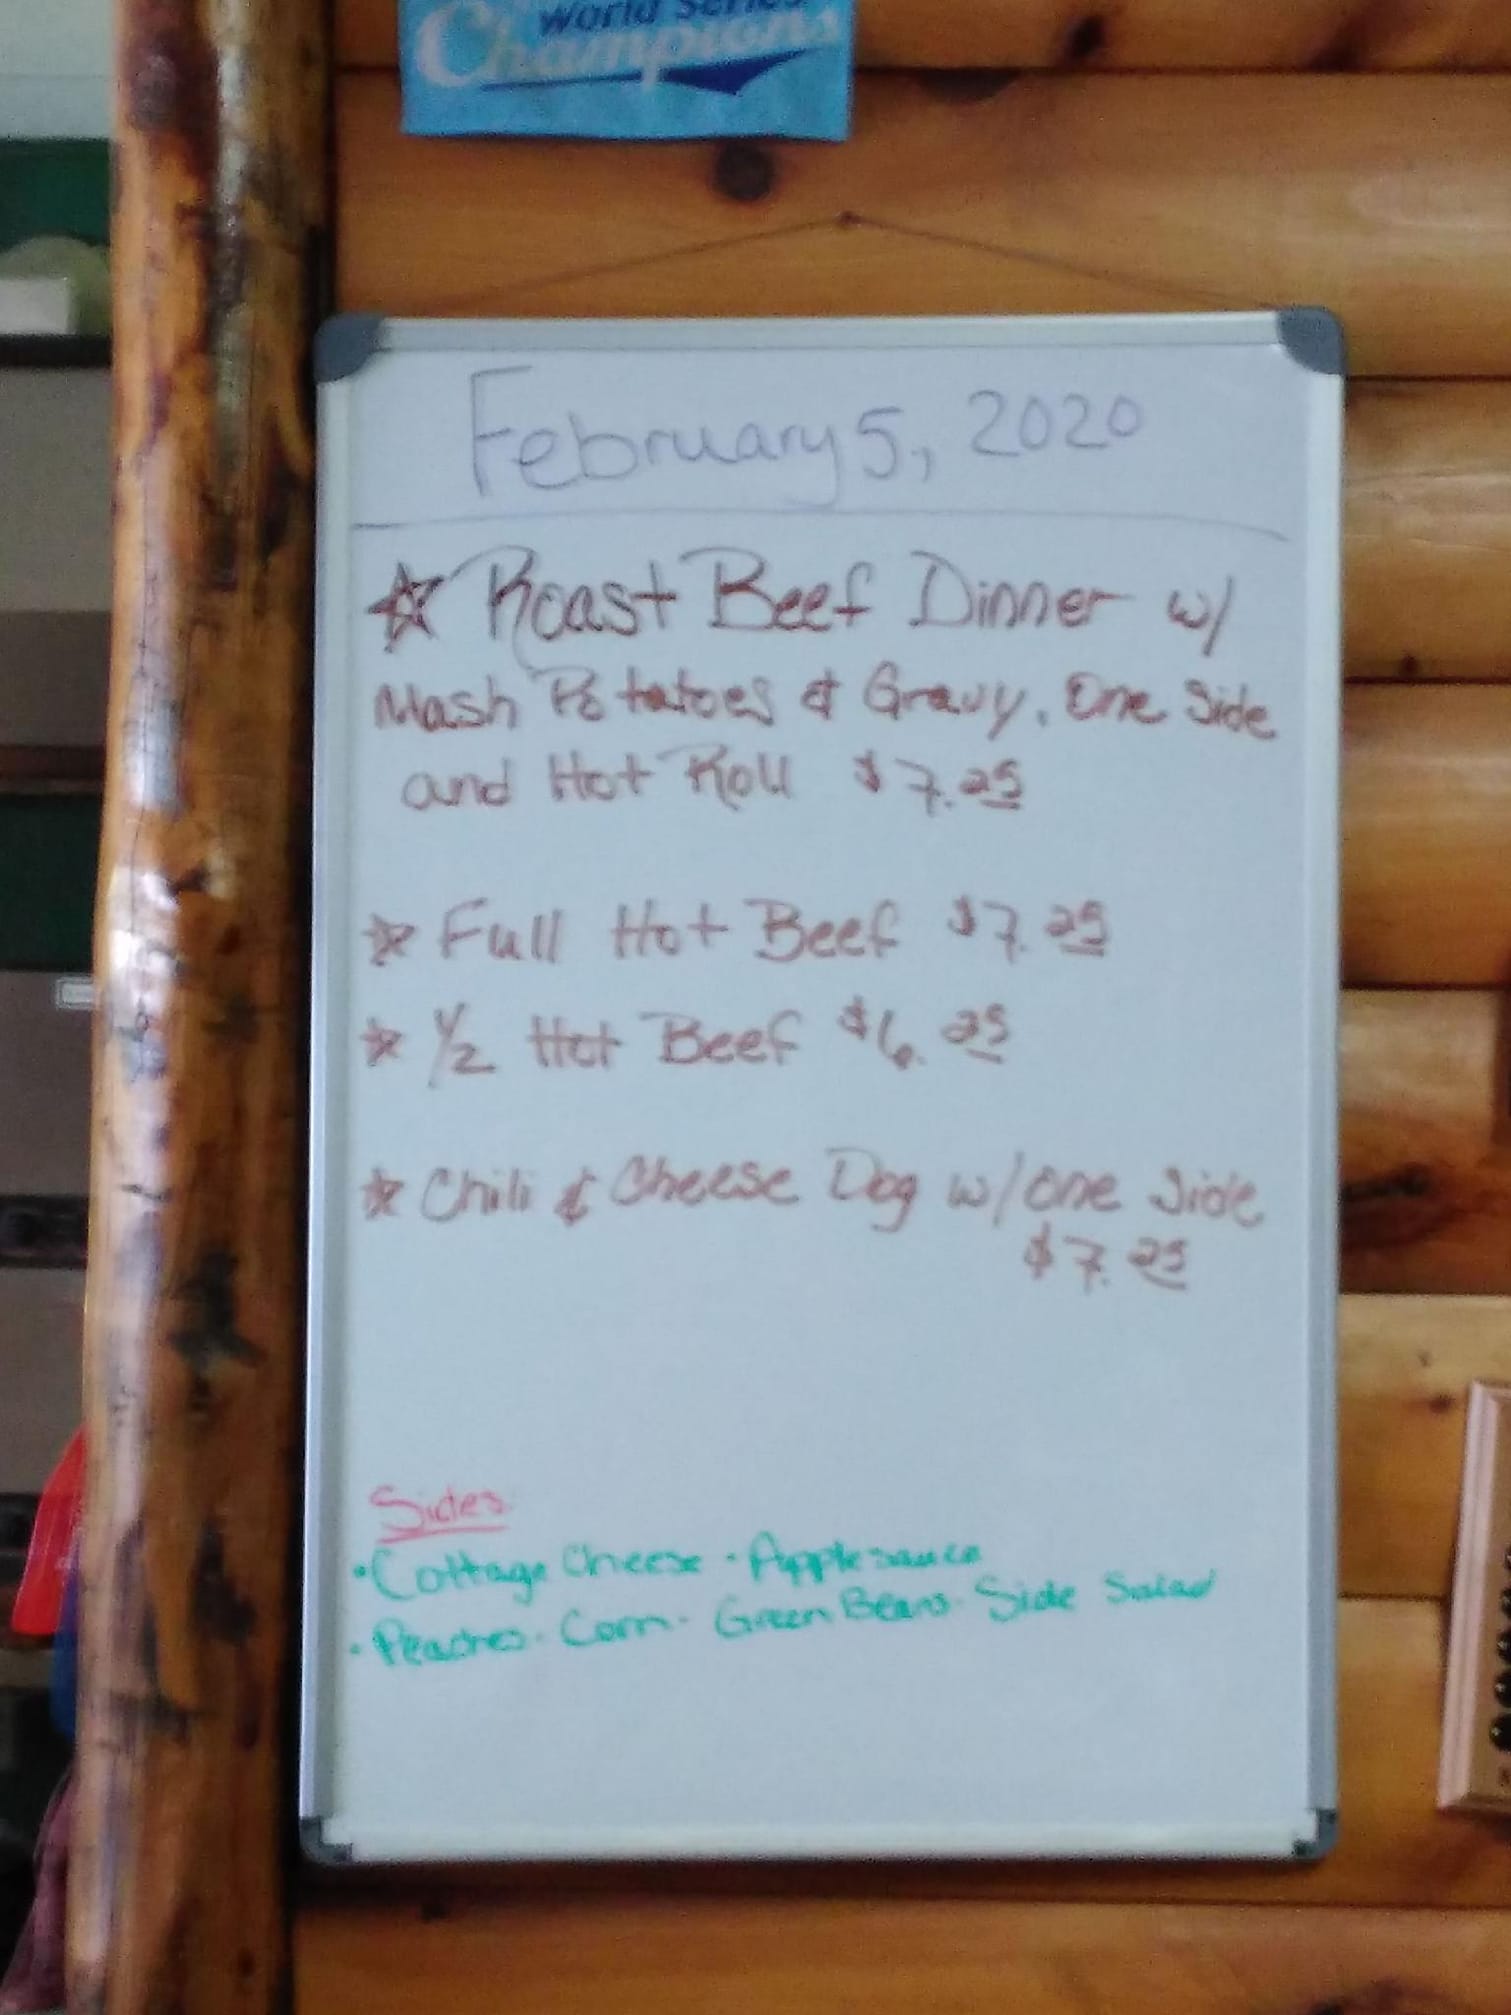 World Series
Champions
February 5, 2020
☆ Roast Beef Dinner w/
Mash Potatoes & Gravy, One Side
and Hot Roll $7.25
☆ Full Hot Beef $7.25
☆ 1/2 Hot Beef $6.25
☆ Chili & Cheese Dog w/ one Side
$7.25
Sides
• Cottage Cheese • Applesauce
• Peaches • Corn • Green Beans • Side Salad